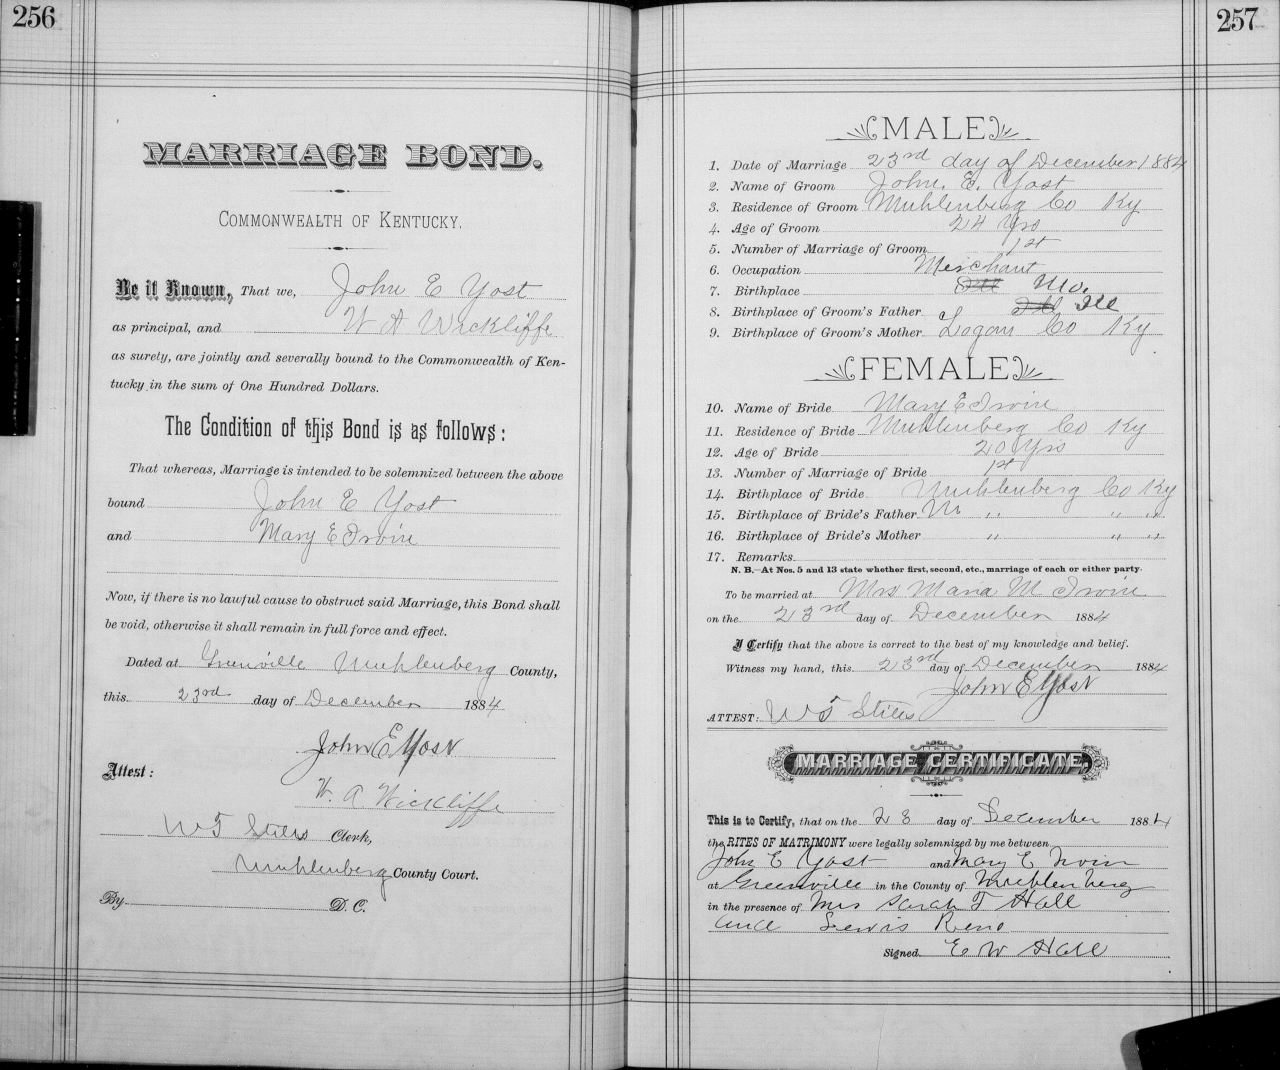 256
MARRIAGE BOND.
COMMONWEALTH OF KENTUCKY.
Be it Known, That we, John E Yost
as principal, and W A Wickliffe
as surely, are jointly and severally bound to the Commonwealth of Ken-
tucky in the sum of One Hundred Dollars.
The Condition of this Bond is as follows:
That whereas, Marriage is intended to be solemnized between the above
bound John E Yost
and Mary E Irvin
Now, if there is no lawful cause to obstruct said Marriage, this Bond shall
be void, otherwise it shall remain in full force and effect.
Dated at Grenville Muhlenberg County,
this 23rd day of December 1884
John E Yost
Attest:
W. A Wickliffe
W T Stiles Clerk,
Muhlenberg County Court.
By D. C.
257
MALE
1. Date of Marriage 23rd day of December 1884
2. Name of Groom John. E. Yost
3. Residence of Groom Muhlenberg Co Ky
4. Age of Groom 24 Yrs
5. Number of Marriage of Groom 1st
6. Occupation Merchant
7. Birthplace Ill Mo.
8. Birthplace of Groom's Father Ill
9. Birthplace of Groom's Mother Logan Co Ky
FEMALE
10. Name of Bride Mary E Irvin
11. Residence of Bride Muhlenberg Co Ky
12. Age of Bride 20 Yrs
13. Number of Marriage of Bride 1st
14. Birthplace of Bride Muhlenberg Co Ky
15. Birthplace of Bride's Father M " " "
16. Birthplace of Bride's Mother " " "
17. Remarks
N. B.—At Nos. 5 and 13 state whether first, second, etc., marriage of each or either party.
To be married at Mrs Maria M Irvin
on the 23rd day of December 1884
I Certify that the above is correct to the best of my knowledge and belief.
Witness my hand, this 23rd day of December 1884
John E Yost
ATTEST: W T Stiles
MARRIAGE CERTIFICATE.
This is to Certify, that on the 23 day of December 1884
the RITES OF MATRIMONY were legally solemnized by me between
John E Yost and Mary E Irvin
at Greenville in the County of Muhlenberg
in the presence of Mrs Sarah T Hall
and Lewis Reno
Signed. E W Hall